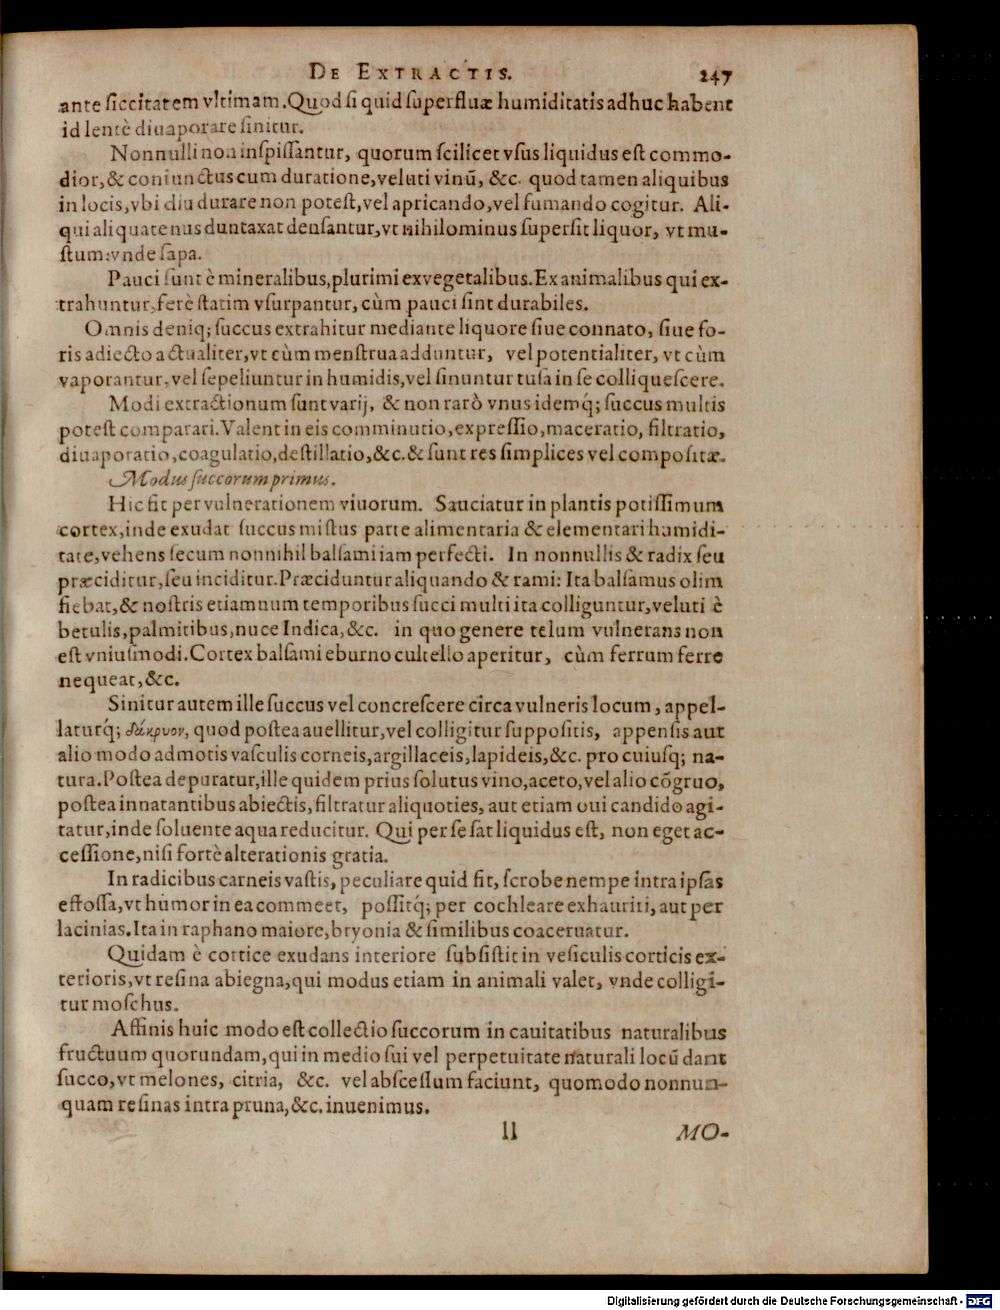 DE EXTRACTIS. 247
ante siccitatem vltimam. Quod si quid superfluæ humiditatis adhuc habent
id lentè diuaporare sinitur.
Nonnulli non inspissantur, quorum scilicet vsus liquidus est commo-
dior, & coniunctus cum duratione, veluti vinũ, &c. quod tamen aliquibus
in locis, vbi diu durare non potest, vel apricando, vel fumando cogitur. Ali-
qui aliquatenus duntaxat densantur, vt nihilominus supersit liquor, vt mu-
stum: vnde sapa.
Pauci sunt è mineralibus, plurimi ex vegetalibus. Ex animalibus qui ex-
trahuntur, ferè statim vsurpantur, cùm pauci sint durabiles.
Omnis deniq; succus extrahitur mediante liquore siue connato, siue fo-
ris adiecto actualiter, vt cùm menstrua adduntur, vel potentialiter, vt cùm
vaporantur, vel sepeliuntur in humidis, vel sinuntur tusa in se colliquescere.
Modi extractionum sunt varij, & non rarò vnus idemq́; succus multis
potest comparari. Valent in eis comminutio, expressio, maceratio, filtratio,
diuaporatio, coagulatio, destillatio, &c. & sunt res simplices vel compositæ.
Modus succorum primus.
Hic fit per vulnerationem viuorum. Sauciatur in plantis potissimum
cortex, inde exudat succus mistus parte alimentaria & elementari humidi-
tate, vehens secum nonnihil balsami iam perfecti. In nonnullis & radix seu
præciditur, seu inciditur. Præciduntur aliquando & rami: Ita balsamus olim
fiebat, & nostris etiamnum temporibus succi multi ita colliguntur, veluti è
betulis, palmitibus, nuce Indica, &c. in quo genere telum vulnerans non
est vniusmodi. Cortex balsami eburno cultello aperitur, cùm ferrum ferre
nequeat, &c.
Sinitur autem ille succus vel concrescere circa vulneris locum, appel-
laturq́; δάκρυον, quod postea auellitur, vel colligitur suppositis, appensis aut
alio modo admotis vasculis corneis, argillaceis, lapideis, &c. pro cuiusq; na-
tura. Postea depuratur, ille quidem prius solutus vino, aceto, vel alio cõgruo,
postea innatantibus abiectis, filtratur aliquoties, aut etiam oui candido agi-
tatur, inde soluente aqua reducitur. Qui per se sat liquidus est, non eget ac-
cessione, nisi fortè alterationis gratia.
In radicibus carneis vastis, peculiare quid fit, scrobe nempe intra ipsas
effossa, vt humor in ea commeet, possitq́; per cochleare exhauriri, aut per
lacinias. Ita in raphano maiore, bryonia & similibus coaceruatur.
Quidam è cortice exudans interiore subsistit in vesiculis corticis ex-
terioris, vt resina abiegna, qui modus etiam in animali valet, vnde colligi-
tur moschus.
Affinis huic modo est collectio succorum in cauitatibus naturalibus
fructuum quorundam, qui in medio sui vel perpetuitate naturali locũ dant
succo, vt melones, citria, &c. vel abscessum faciunt, quomodo nonnun-
quam resinas intra pruna, &c. inuenimus.
ll MO-
Digitalisierung gefördert durch die Deutsche Forschungsgemeinschaft - DFG